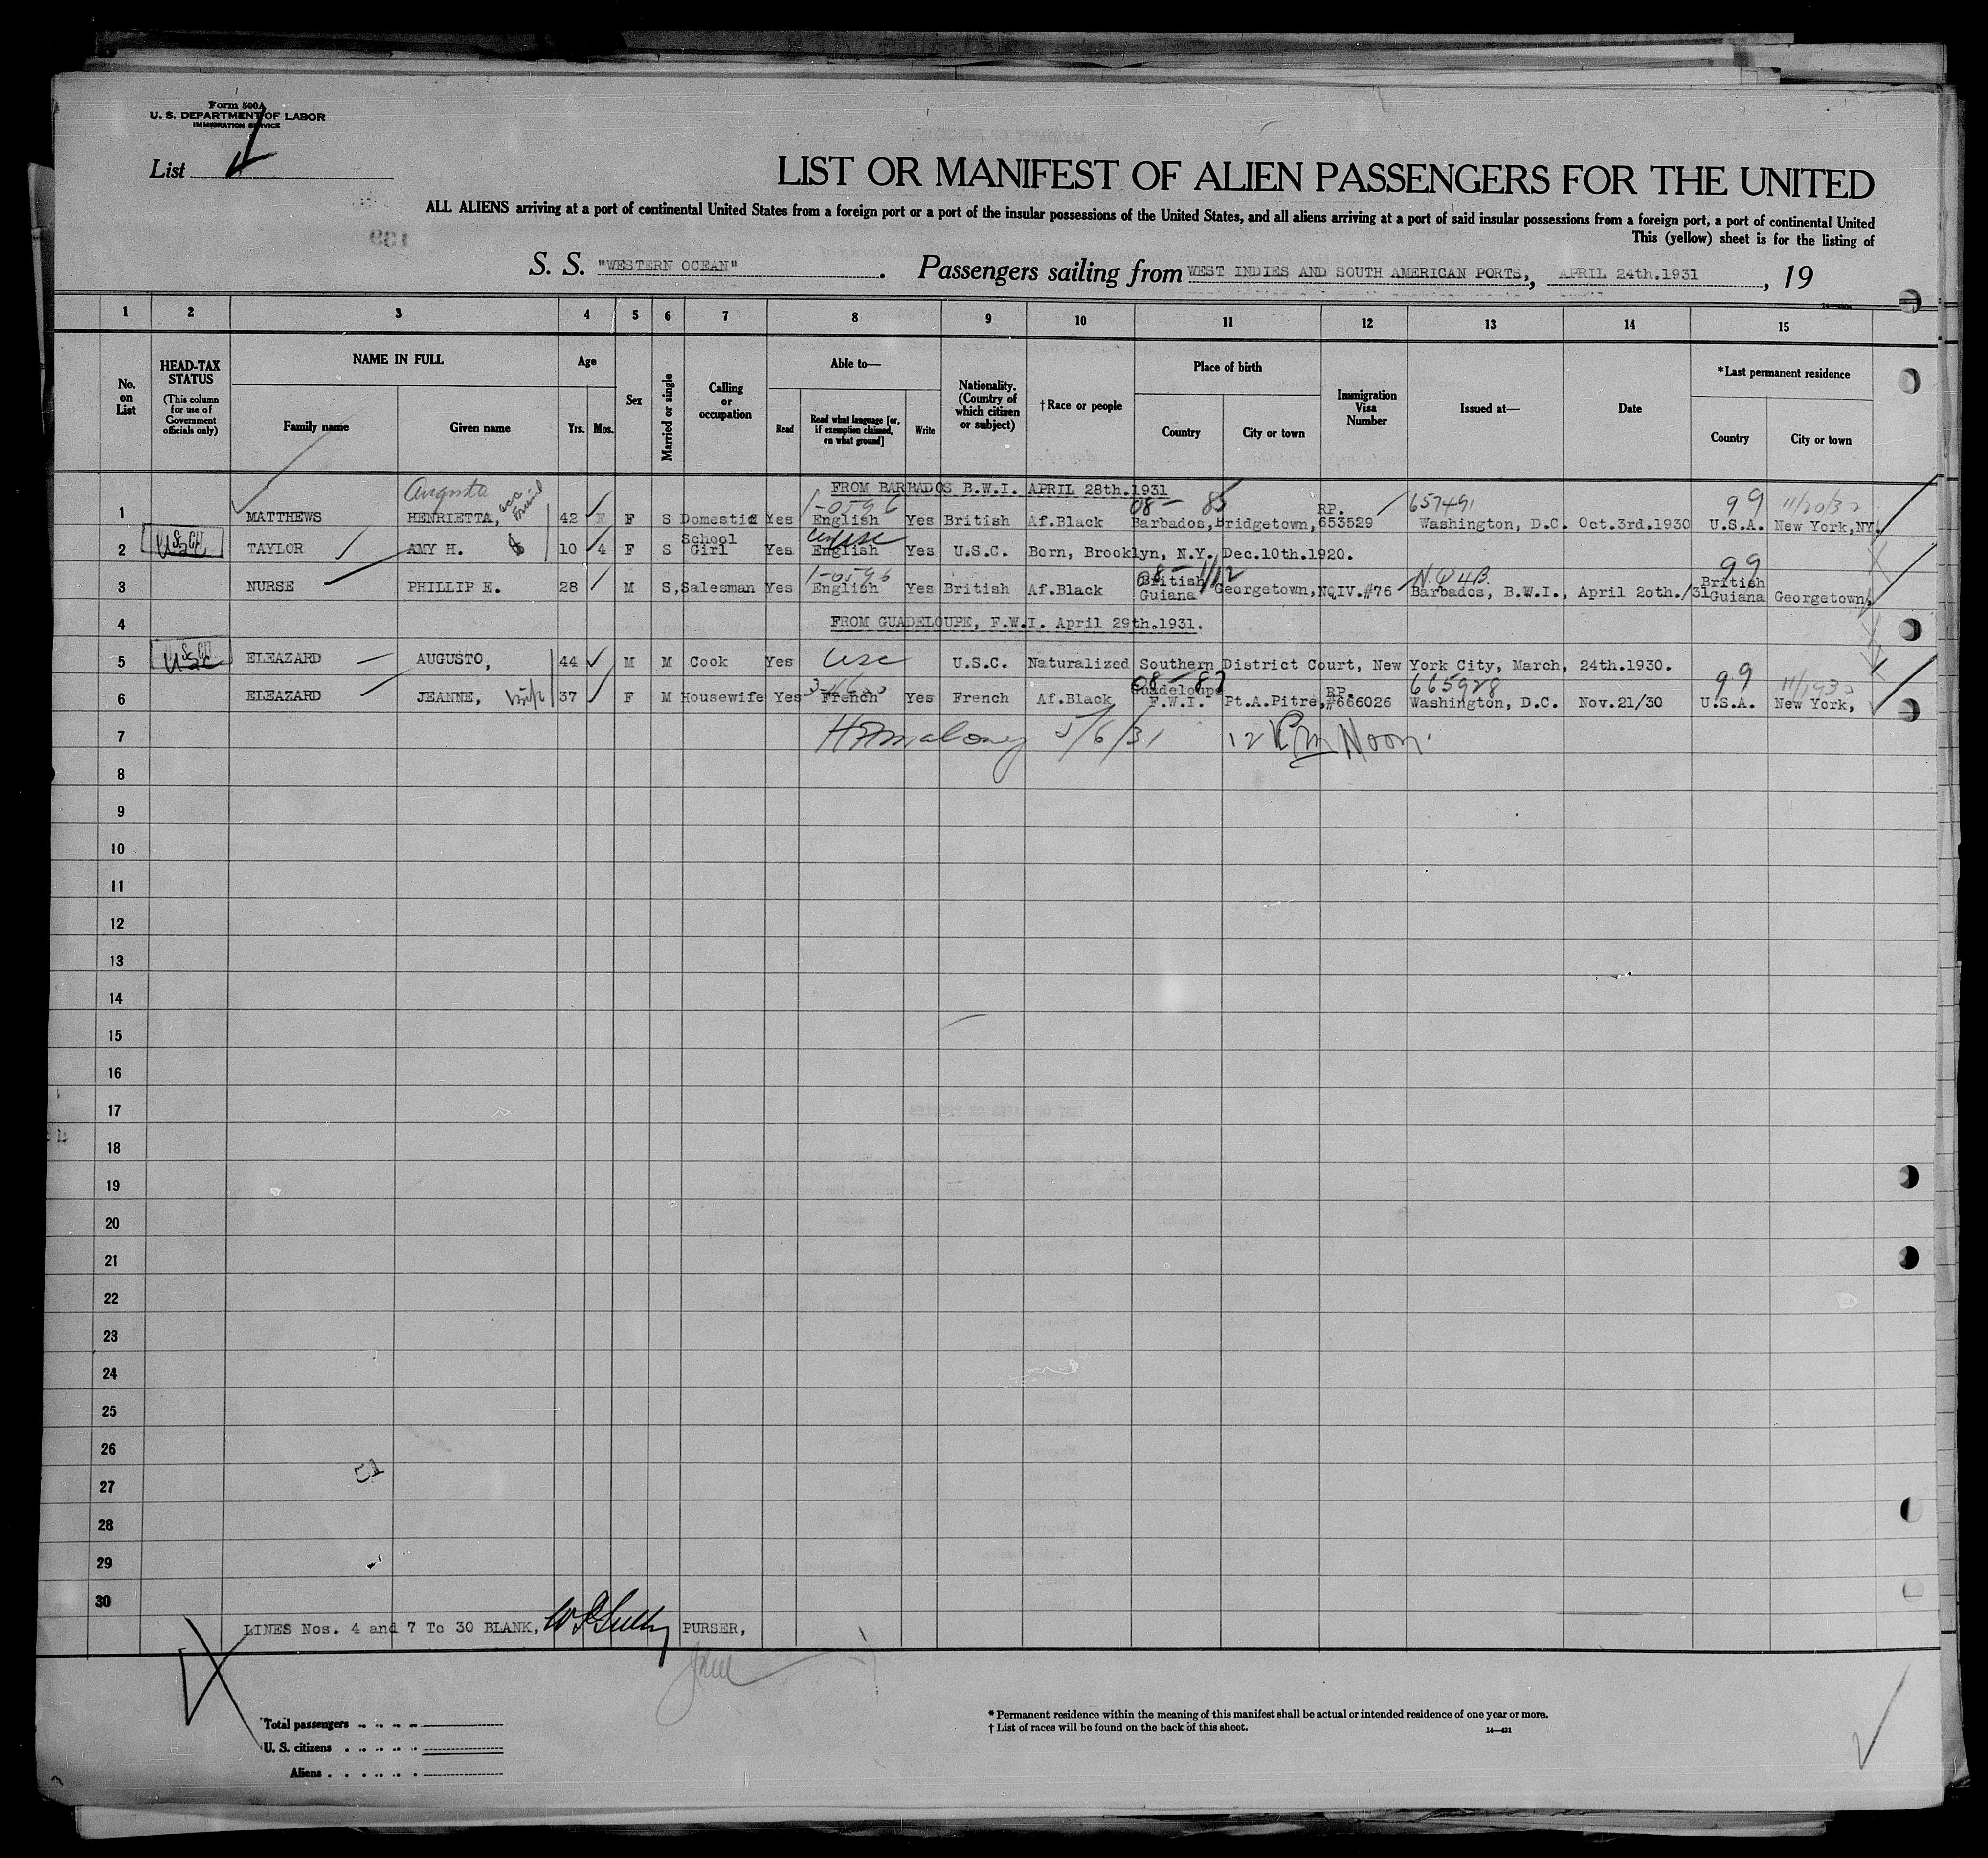 Form 500A
U. S. DEPARTMENT OF LABOR
IMMIGRATION SERVICE
List 1
LIST OR MANIFEST OF ALIEN PASSENGERS FOR THE UNITED
ALL ALIENS arriving at a port of continental United States from a foreign port or a port of the insular possessions of the United States, and all aliens arriving at a port of said insular possessions from a foreign port, a port of continental United
This (yellow) sheet is for the listing of
S. S. "WESTERN OCEAN" . Passengers sailing from WEST INDIES AND SOUTH AMERICAN PORTS, , APRIL 24th.1931 , 19
1 2 3 4 5 6 7 8 9 10 11 12 13 14 15
No. on List
HEAD-TAX STATUS (This column for use of Government officials only)
NAME IN FULL Family name Given name
Age Yrs. Mos.
Sex
Married or single
Calling or occupation
Able to— Read Read what language [or, if exemption claimed, on what ground] Write
Nationality. (Country of which citizen or subject)
† Race or people
Place of birth Country City or town
Immigration Visa Number
Issued at—
Date
*Last permanent residence Country City or town
FROM BARBADOS B.W.I. APRIL 28th.1931
Augusta acc friend 1-0596 08- 85 RP. 657491 99 11/20/30
1 MATTHEWS HENRIETTA, 42 F S Domestic Yes English Yes British Af.Black Barbados, Bridgetown, 653529 Washington, D.C. Oct.3rd.1930 U.S.A. New York,NY.
2 US CIT USC TAYLOR AMY H. 10 4 F S School Girl Yes English usc Yes U.S.C. Born, Brooklyn, N.Y. Dec.10th.1920.
1-0596 08- 1/12 N.Q 4B. 99
3 NURSE PHILLIP E. 28 M S, Salesman Yes English Yes British Af.Black British Guiana Georgetown, NQIV.#76 Barbados, B.W.I., April 2oth./31 British Guiana Georgetown,
4 FROM GUADELOUPE, F.W.I. April 29th.1931.
5 US CIT USC ELEAZARD AUGUSTO, 44 M M Cook Yes usc U.S.C. Naturalized Southern District Court, New York City, March, 24th.1930.
08- 87 665928 99
6 ELEAZARD JEANNE, wife 37 F M Housewife Yes French Yes French Af.Black Guadeloupe F.W.I. Pt.A.Pitre, RP. #666026 Washington, D.C. Nov.21/30 U.S.A. New York,
7 5/6/31 12 Pm Noon.
8
9
10
11
12
13
14
15
16
17
18
19
20
21
22
23
24
25
26
27
28
29
30
LINES Nos. 4 and 7 To 30 BLANK, PURSER,
Total passengers
U. S. citizens
Aliens
* Permanent residence within the meaning of this manifest shall be actual or intended residence of one year or more.
† List of races will be found on the back of this sheet.
14—421